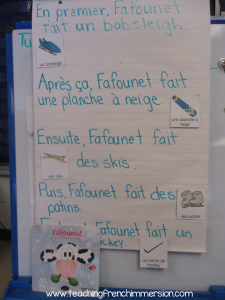 En premier, Fafounet
fait un bobsleigh.
un bobsleigh
Après ça, Fafounet fait
une planche à neige.
une planche à
neige
Ensuite, Fafounet fait
des skis.
des skis
Puis, Fafounet fait des
patins.
des patins
Fafounet fait un
Fafounet
un bâton de
hockey
www.teachingfrenchimmersion.com